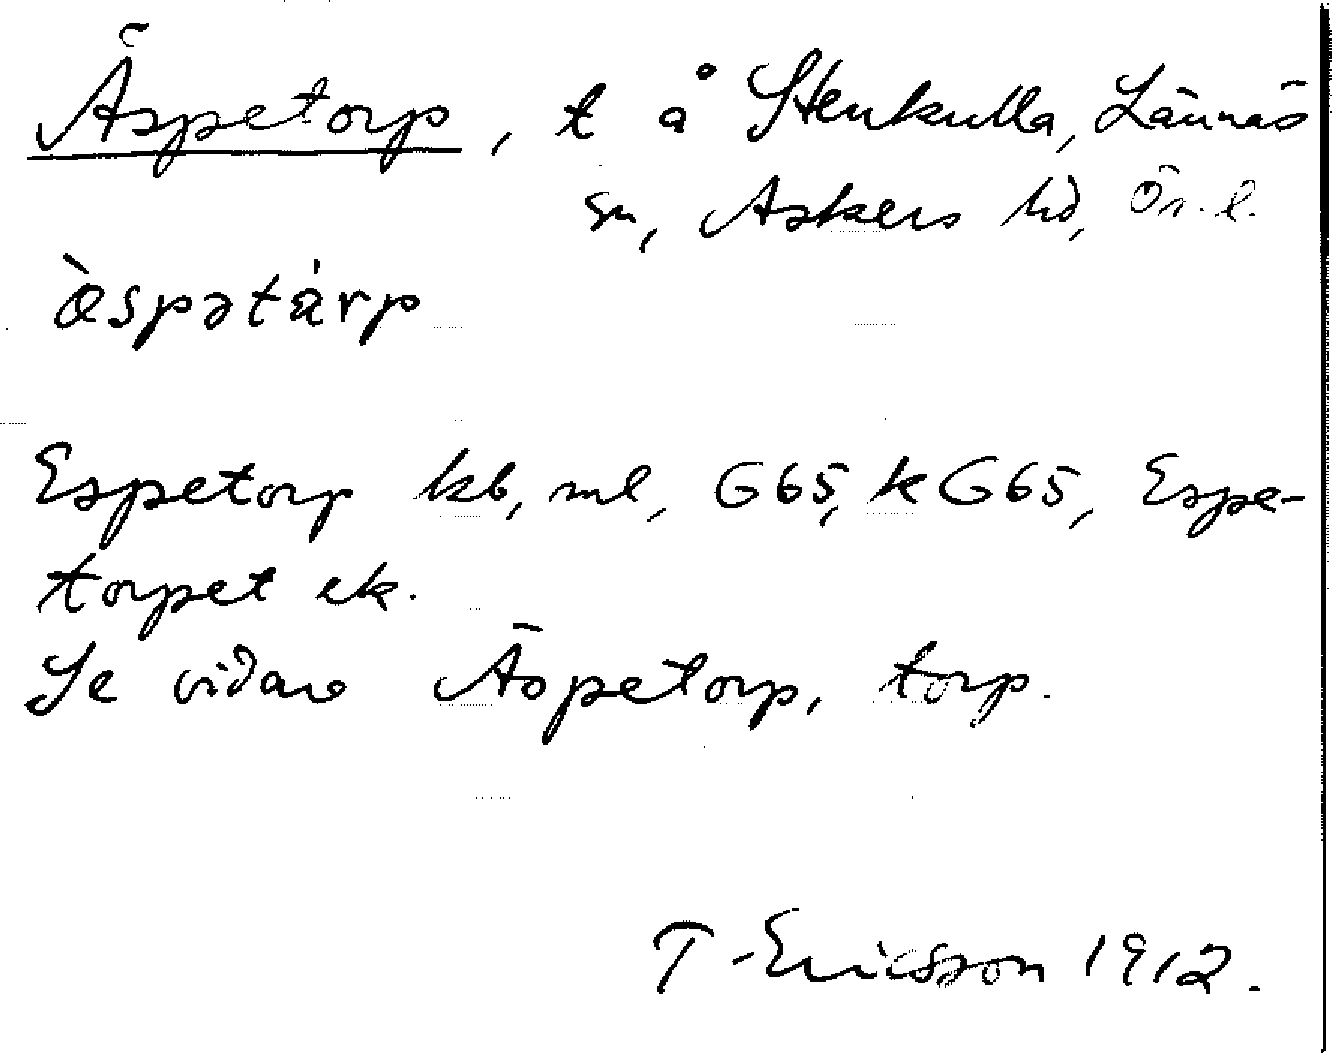 Äspetorp, t å Stenkulla, Lännäs
sn, Askers hd, Ör. l.
ɶ̀spətårp
Espetorp kb, ml, G65, k G65, Espe-
torpet ek.
Se vidare Äspetorp, torp.
T. Ericsson 1912.